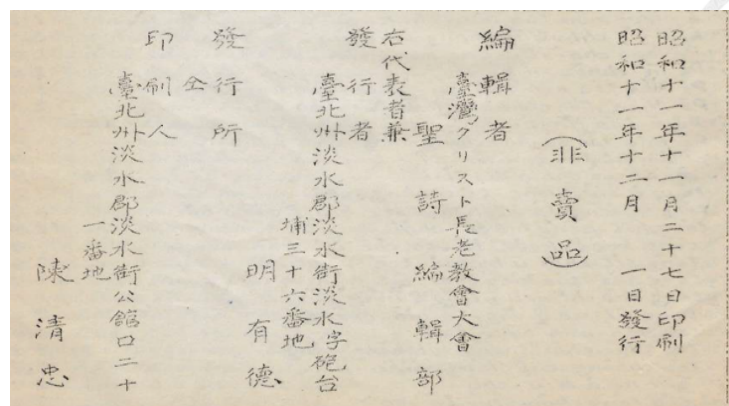 昭和十一年十一月二十七日印刷
昭和十一年十二月一日發行
(非賣品)
編輯者
臺灣クリスト長老教會大會
聖詩編輯部
右代表者兼
發行者
臺北州淡水郡淡水街淡水字砲台
埔三十六番地
明有德
發行所
仝
印刷人
臺北州淡水郡淡水街公館口二十
一番地
陳清忠